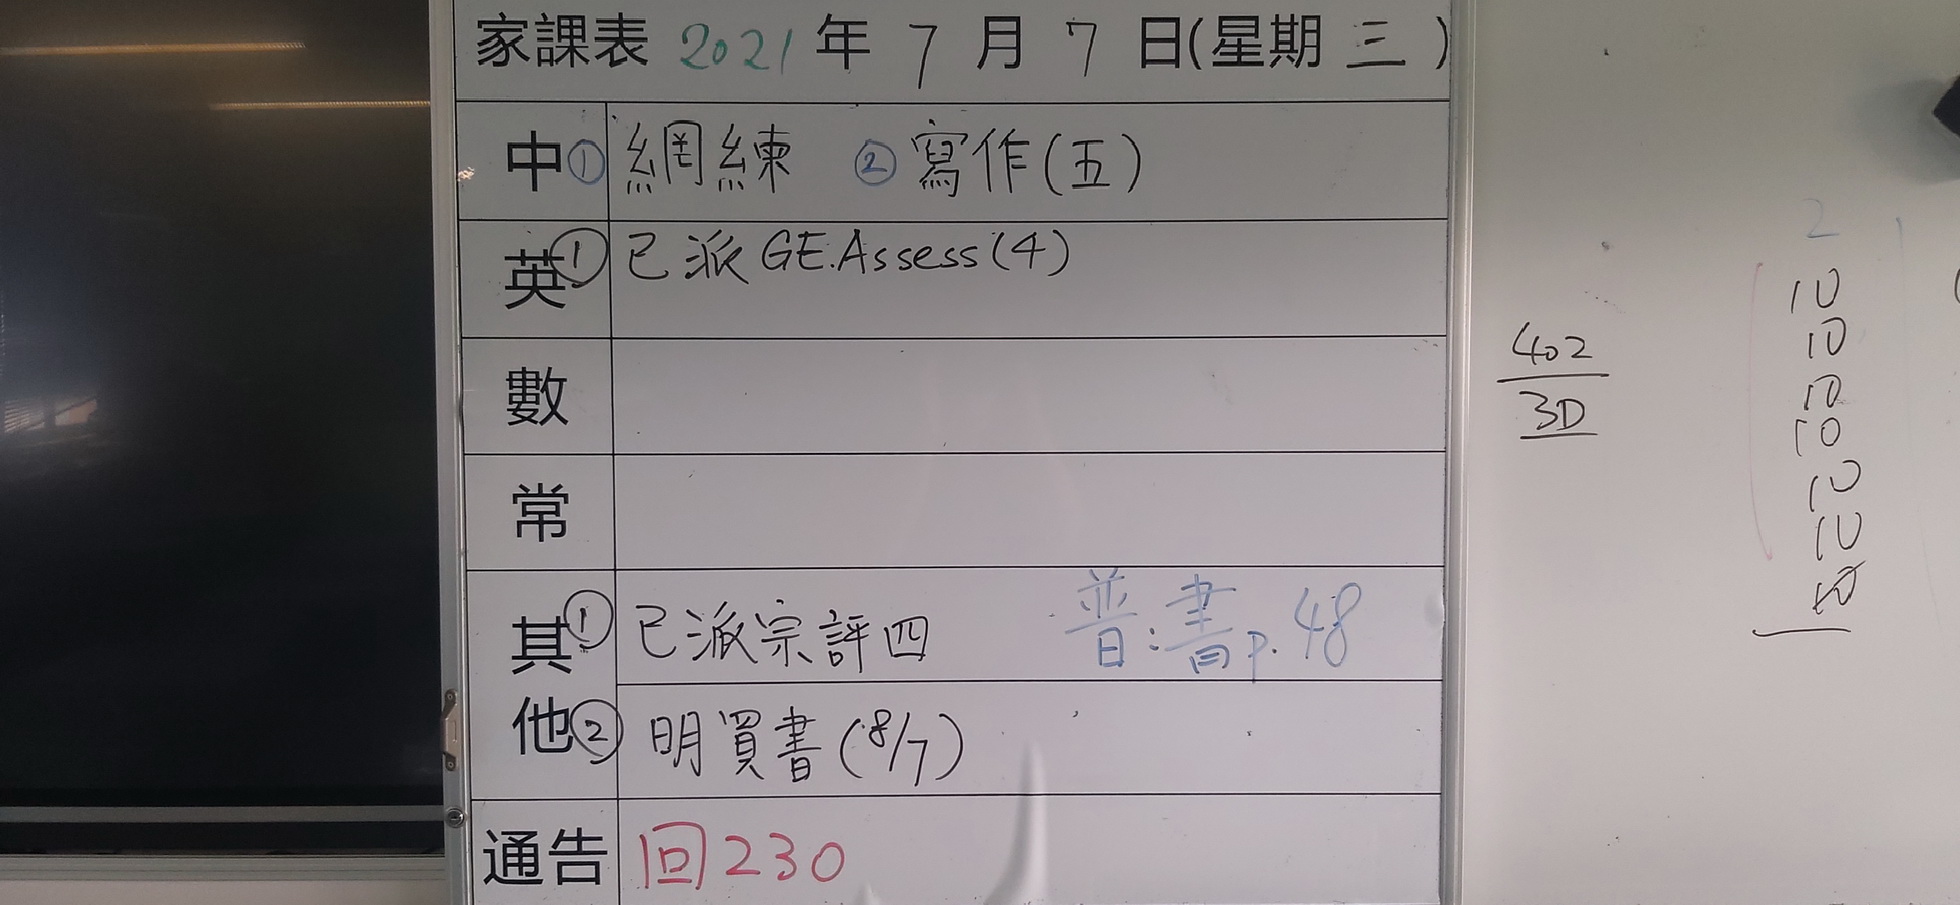 家課表 2021 年 7 月 7 日(星期 三)
中 ① 網練 ② 寫作(五)
英 ① 已派 GE.Assess(4)
數
常
其他 ① 已派宗評四 普:書p.48
② 明買書(8/7)
通告 回230
402
3D
2
10
10
10
10
10
10
10